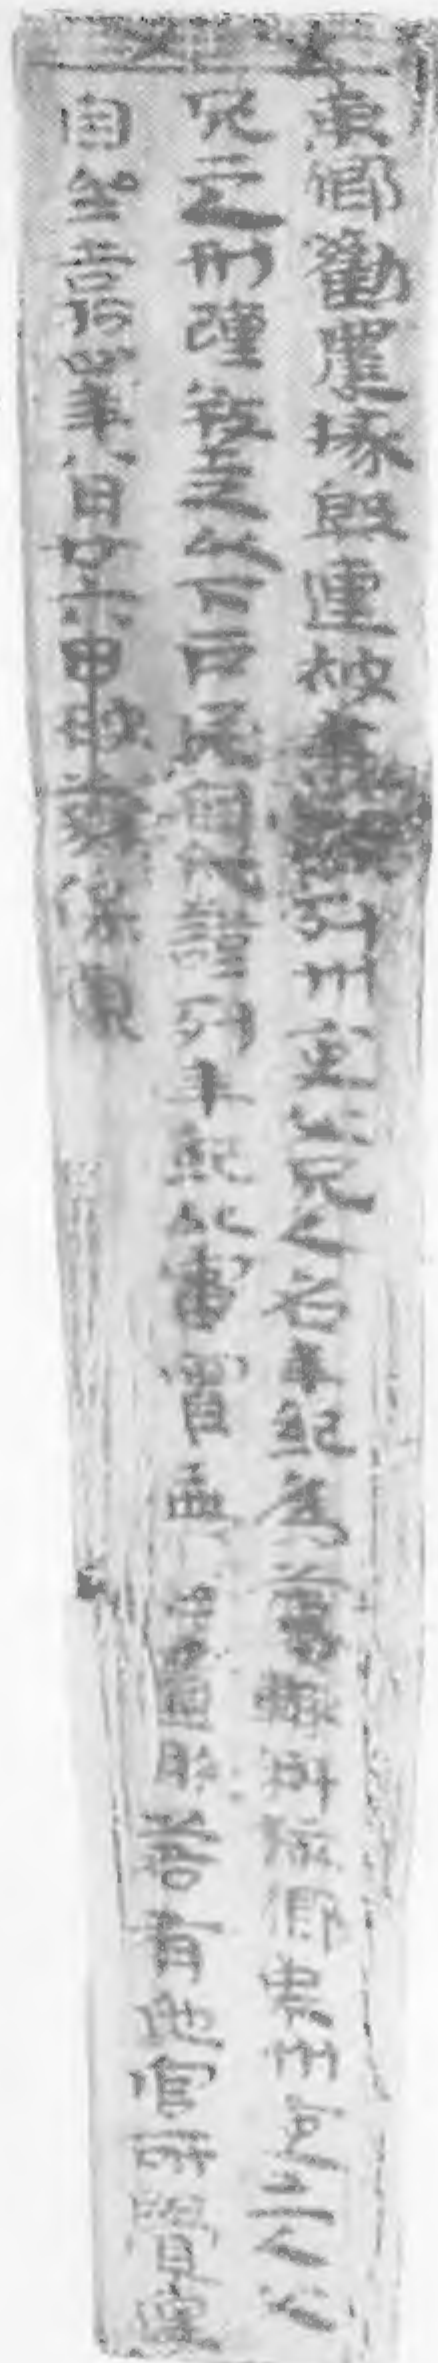 東鄉勸農掾殷連被書條列州吏父兄人名年紀為簿輒科核鄉界州吏三人父
兄二人刑踵叛走以下戶民自代謹列年紀以審實無有遺脫若有他官所覺連
自坐嘉禾四年八月廿六日破莂保據